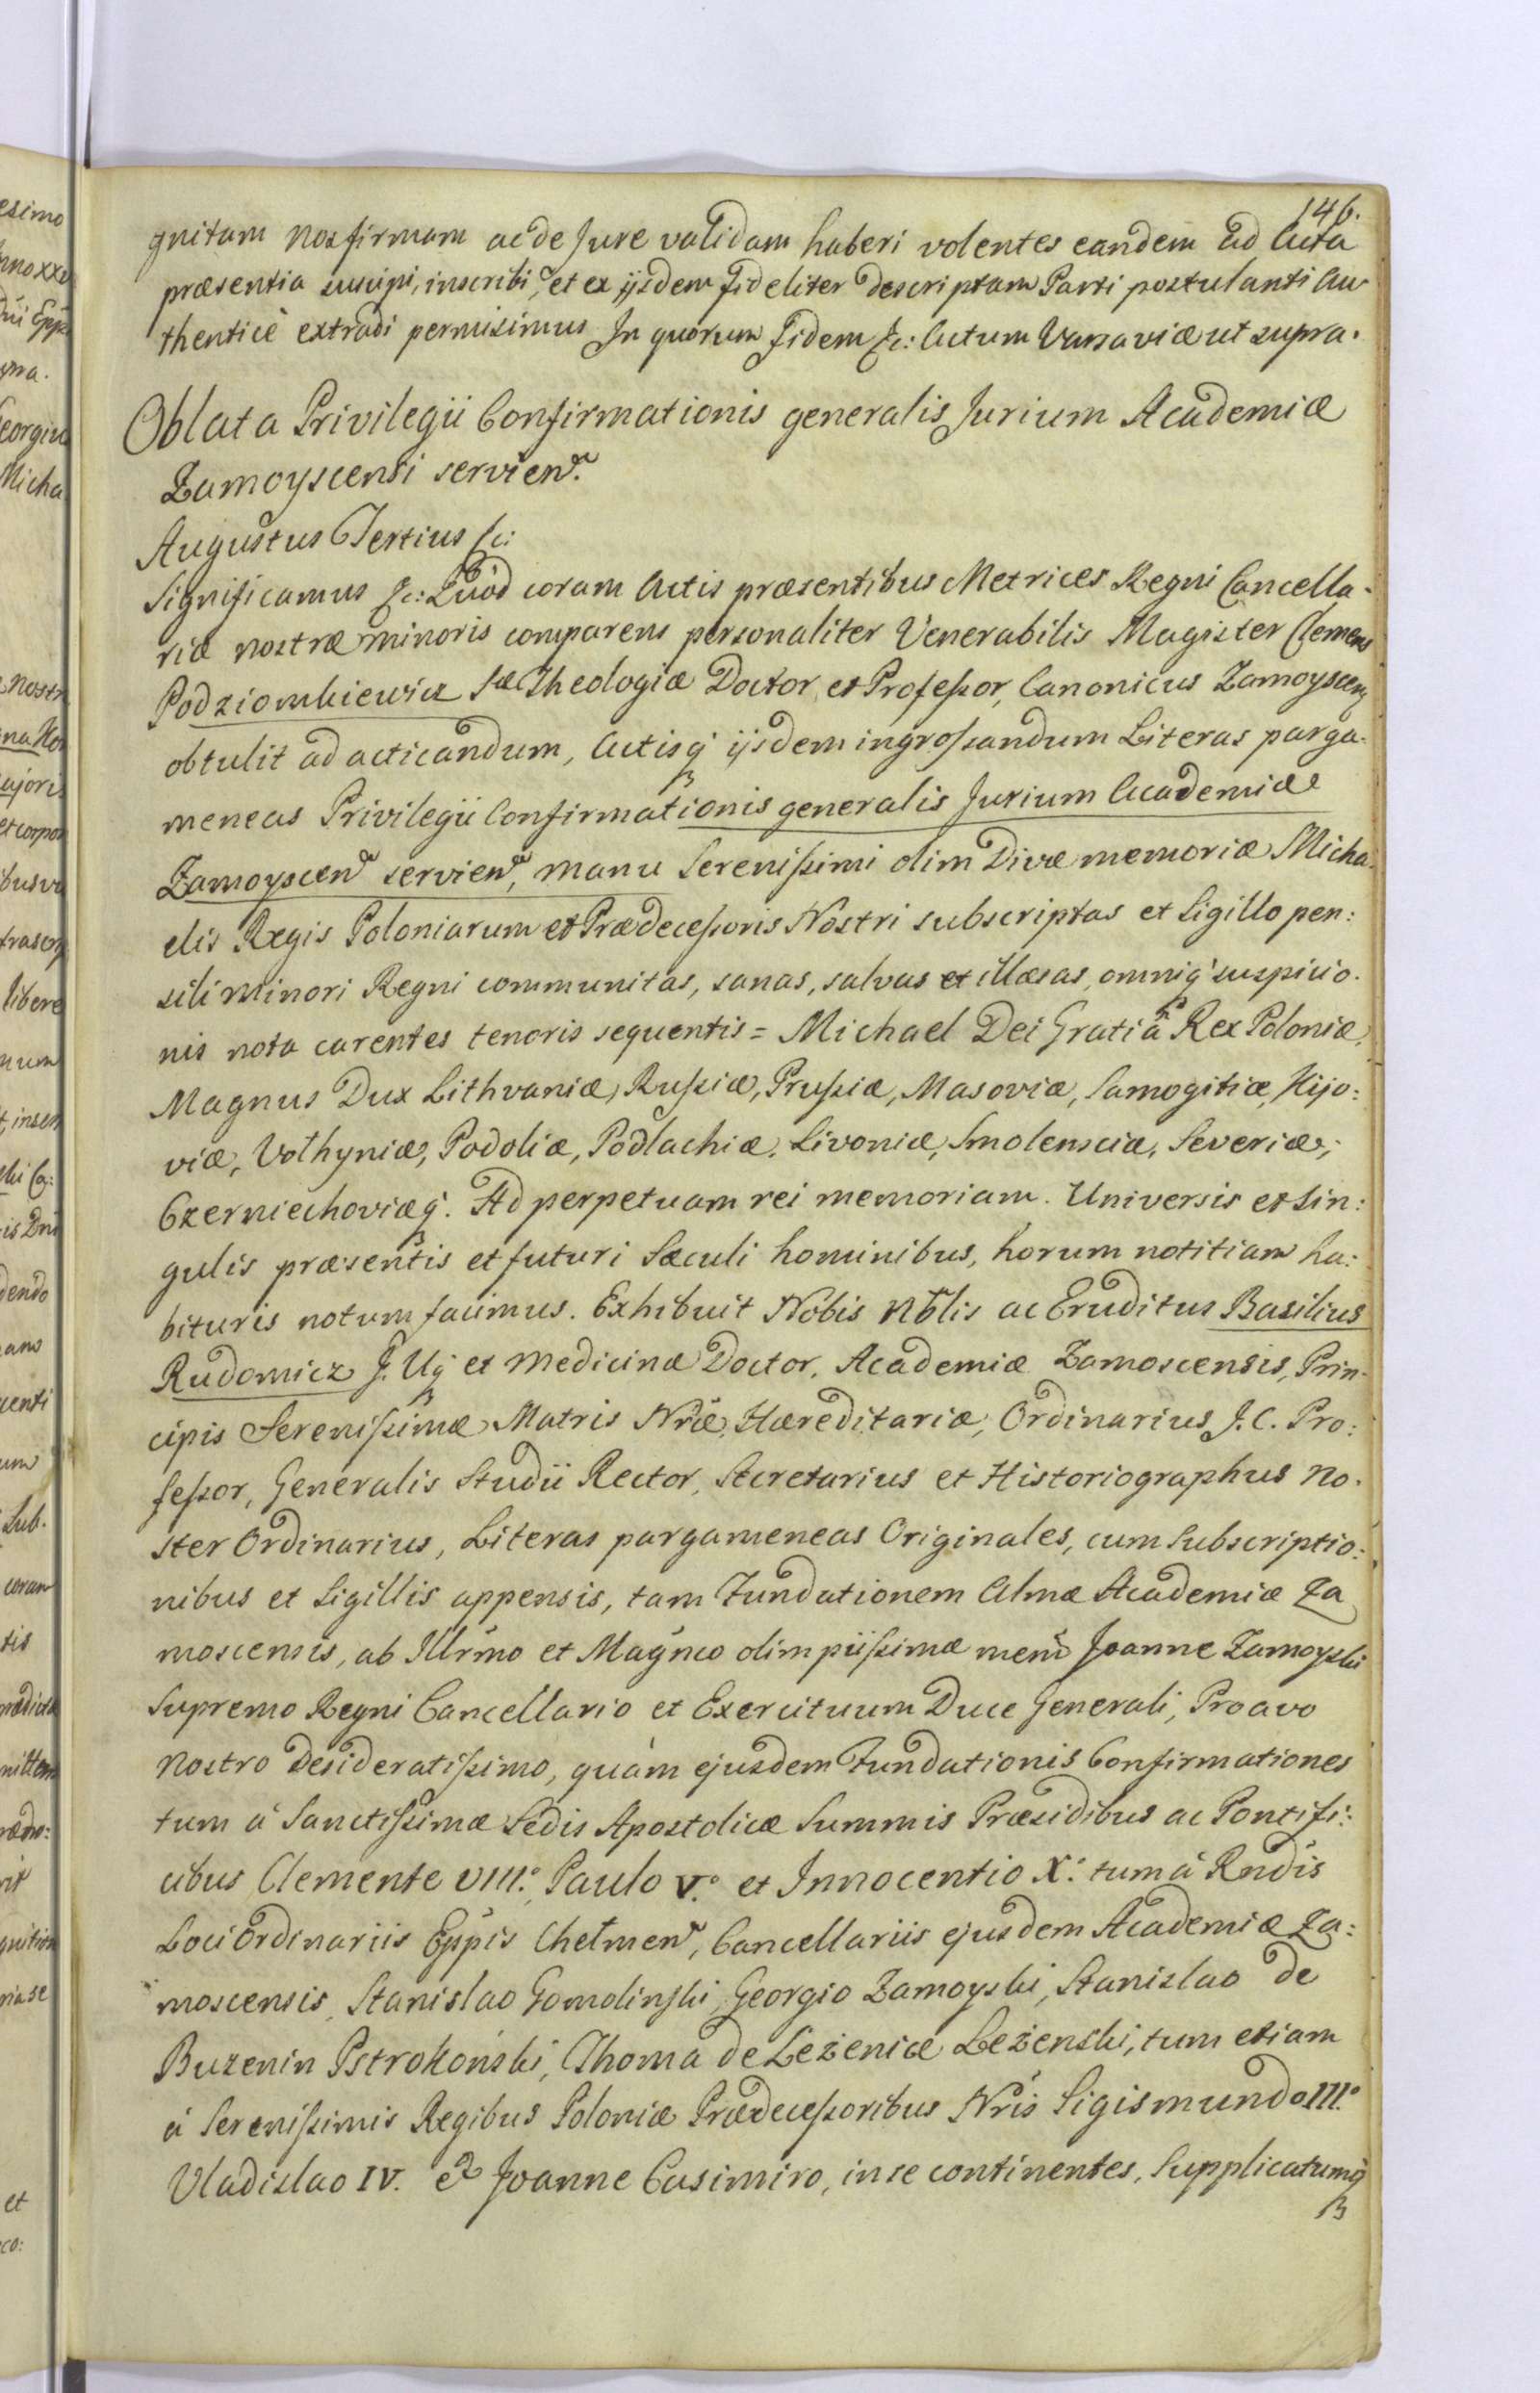 146.
gnitam nos firmam ac de Jure validam haberi volentes eandem ad Acta
præsentia suscipi, inscribi, et ex ijsdem fideliter descriptam Parti postulanti Au-
thenticè extradi permisimus In quorum fidem &c: Actum Varsaviæ ut supra.
Oblata Privilegii Confirmationis generalis Jurium Academiæ
Zamoyscensi servien.
Augustus Tertius &c:
Significamus &c: Quòd coram Actis præsentibus Metrices Regni Cancella-
riæ nostræ minoris comparens personaliter Venerabilis Magister Clemens
Podziomkiewicz Sæ Theologiæ Doctor et Profeſsor, Canonicus Zamoyscen
obtulit ad acticandum, Actisq́ ijsdem ingroſsandum Literas parga-
meneas Privilegii Confirmationis generalis Jurium Academiæ
Zamoyscen servien, manu Sereniſsimi olim Divæ memoriæ Micha-
elis Regis Poloniarum et Prædeceſsoris Nostri subscriptas et Sigillo pen:
sili minori Regni communitas, sanas, salvas et illæsas, omniq́ suspicio-
nis nota carentes tenoris sequentis = Michael Dei Gratiâ Rex Poloniæ,
Magnus Dux Lithvaniæ, Ruſsiæ, Pruſsiæ, Masoviæ, Samogitiæ, Kijo:
viæ, Volhyniæ, Podoliæ, Podlachiæ, Livoniæ, Smolensciæ, Severiæ,
Czerniechoviæq́. Ad perpetuam rei memoriam. Universis et sin:
gulis præsentis et futuri Sæculi hominibus, horum notitiam ha:
bituris notum facimus. Exhibuit Nobis Nblis ac Eruditus Basilius
Rudomicz J. Uq́ et Medicinæ Doctor, Academiæ Zamoscensis, Prin-
cipis Sereniſsimæ Matris Nræ, Hæreditariæ, Ordinarius J. C. Pro:
feſsor, Generalis Studii Rector, Secretarius et Historiographus No-
ster Ordinarius, Literas pargameneas Originales, cum Subscriptio:
nibus et Sigillis appensis, tam Fundationem Almæ Academiæ Za
moscensis, ab Illrmo et Magnco olim piiſsimæ mem Joanne Zamoyski
Supremo Regni Cancellario et Exercituum Duce Generali, Proavo
Nostro Desideratiſsimo, quàm ejusdem Fundationis Confirmationes
tum à Sanctiſsimæ Sedis Apostolicæ Summis Præsidibus ac Pontifi:
cibus Clemente VIII.° Paulo V.° et Innocentio X.° tum à Rndis
Loci Ordinariis Eppis Chelmen, Cancellariis ejusdem Academiæ Za:
moscensis, Stanislao Gomolinski, Georgio Zamoyski, Stanislao de
Buzenin Pstrokoński, Thoma de Leżenice Leżenski, tum etiam
à Sereniſsimis Regibus Poloniæ Prædeceſsoribus Nris Sigismundo III.°
Vladislao IV. et Joanne Casimiro, in se continentes, Supplicatumq́